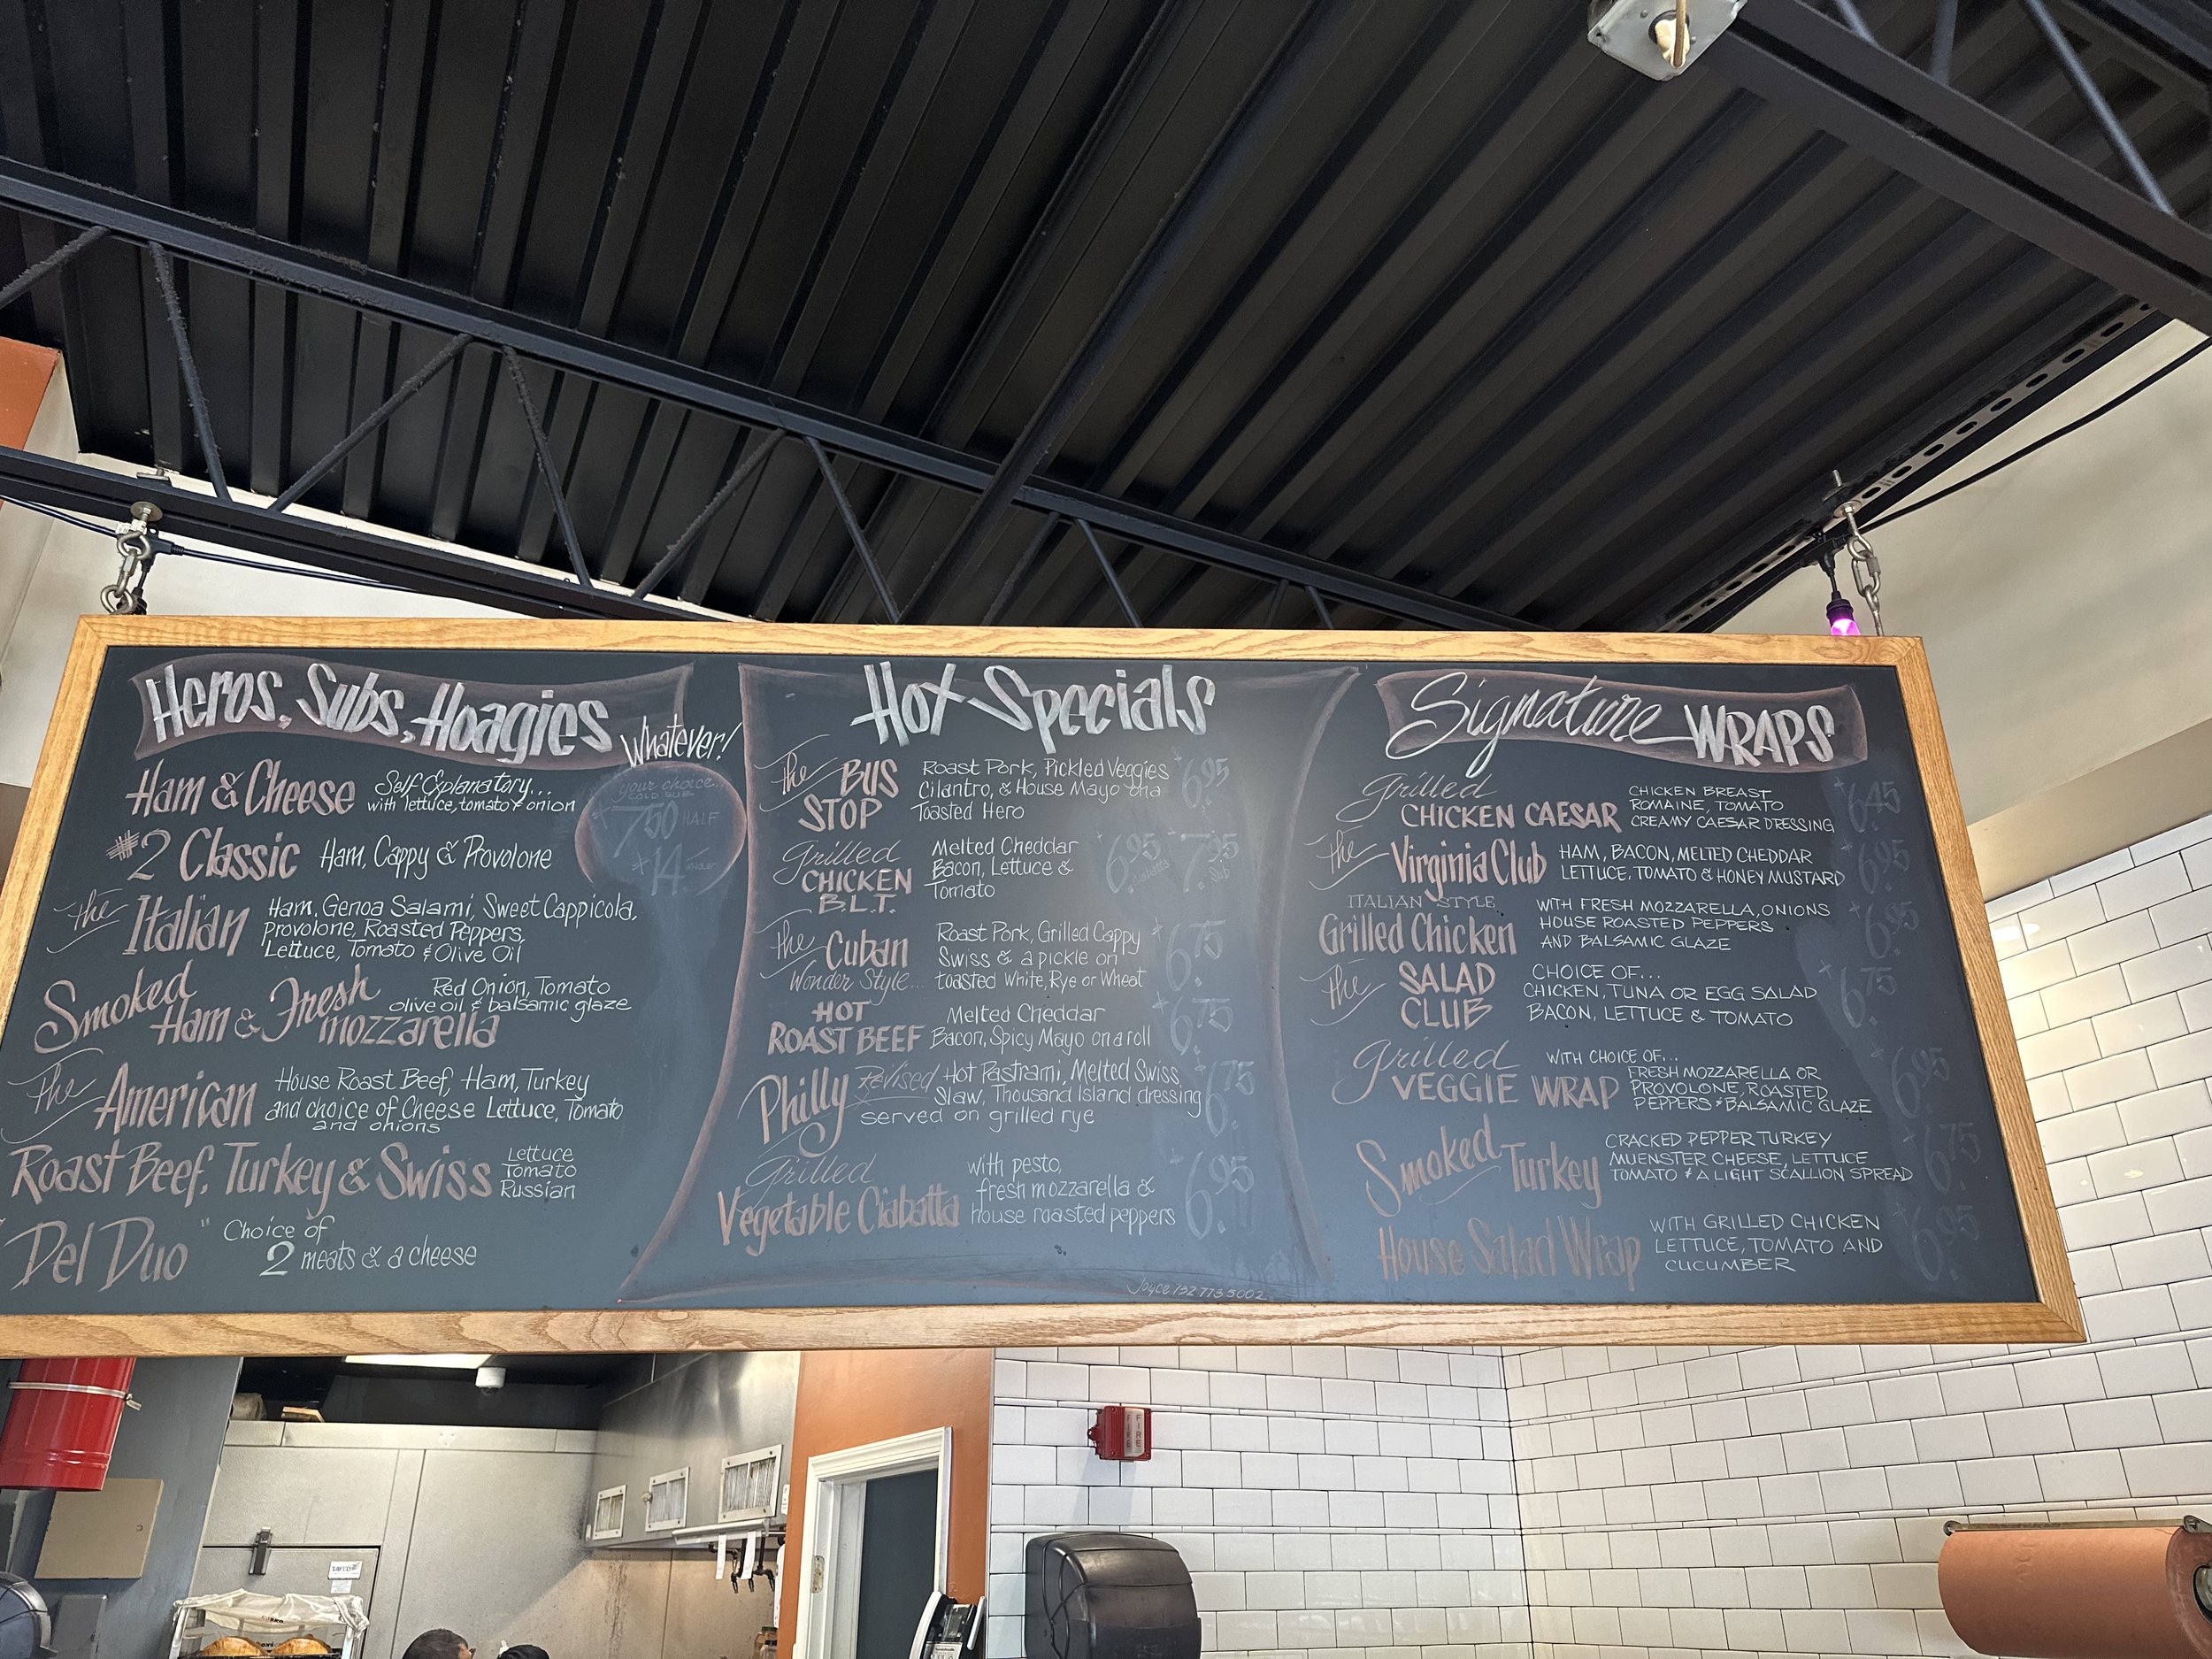 Heros, Subs, Hoagies
Whatever!
Ham & Cheese
Self Explanatory...
with lettuce, tomato & onion
your choice..
COLD SUB
$7.50 HALF
$14.
#2 Classic
Ham, Cappy & Provolone
The Italian
Ham, Genoa Salami, Sweet Cappicola,
Provolone, Roasted Peppers,
Lettuce, Tomato & Olive Oil
Smoked
Ham & Fresh
mozzarella
Red Onion, Tomato
olive oil & balsamic glaze
The American
House Roast Beef, Ham, Turkey
and choice of Cheese Lettuce, Tomato
and onions
Roast Beef, Turkey & Swiss
Lettuce
Tomato
Russian
"Del Duo"
Choice of
2 meats & a cheese
Hot Specials
The BUS
STOP
Roast Pork, Pickled Veggies
Cilantro, & House Mayo on a
Toasted Hero
$6.95
Grilled
CHICKEN
B.L.T.
Melted Cheddar
Bacon, Lettuce &
Tomato
$6.95 $7.95
The Cuban
Wonder Style...
Roast Pork, Grilled Cappy
Swiss & a pickle on
toasted White, Rye or Wheat
$6.75
HOT
ROAST BEEF
Melted Cheddar
Bacon, Spicy Mayo on a roll
$6.75
Philly Revised
Hot Pastrami, Melted Swiss,
Slaw, Thousand Island dressing
served on grilled rye
$6.75
Grilled
Vegetable Ciabatta
with pesto,
fresh mozzarella &
house roasted peppers
$6.95
Joyce 732 773 5002
Signature WRAPS
Grilled
CHICKEN CAESAR
CHICKEN BREAST
ROMAINE, TOMATO
CREAMY CAESAR DRESSING
$6.45
The Virginia Club
HAM, BACON, MELTED CHEDDAR
LETTUCE, TOMATO & HONEY MUSTARD
$6.95
ITALIAN STYLE
Grilled Chicken
WITH FRESH MOZZARELLA, ONIONS
HOUSE ROASTED PEPPERS
AND BALSAMIC GLAZE
$6.95
The SALAD
CLUB
CHOICE OF...
CHICKEN, TUNA OR EGG SALAD
BACON, LETTUCE & TOMATO
$6.75
Grilled
VEGGIE WRAP
WITH CHOICE OF...
FRESH MOZZARELLA OR
PROVOLONE, ROASTED
PEPPERS & BALSAMIC GLAZE
$6.95
Smoked Turkey
CRACKED PEPPER TURKEY
MUENSTER CHEESE, LETTUCE
TOMATO & A LIGHT SCALLION SPREAD
$6.75
House Salad Wrap
WITH GRILLED CHICKEN
LETTUCE, TOMATO AND
CUCUMBER
$6.95
FIRE
FIRE